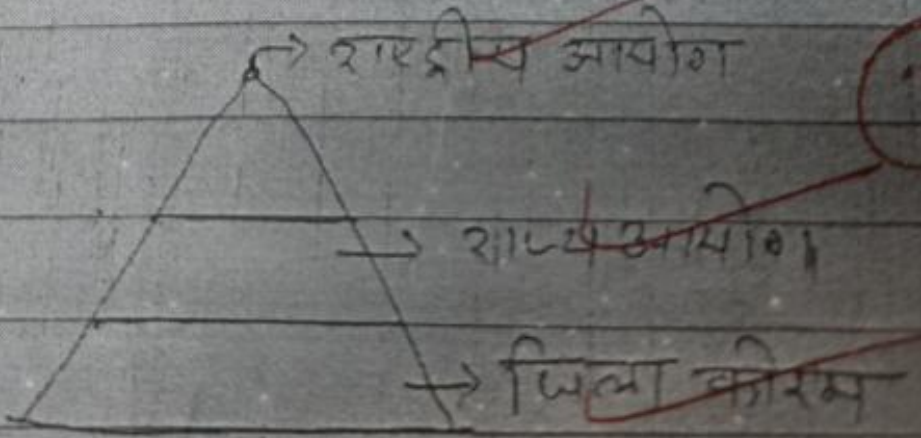 राष्ट्रीय आयोग
राज्य आयोग
जिला फोरम